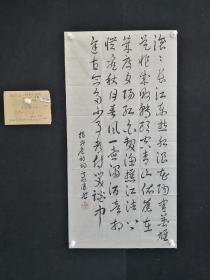 滚滚长江东逝水浪花淘尽英雄
是非成败转头空青山依旧在
几度夕阳红白发渔樵江渚上
惯看秋月春风一壶浊酒喜相
逢古今多少事都付笑谈中